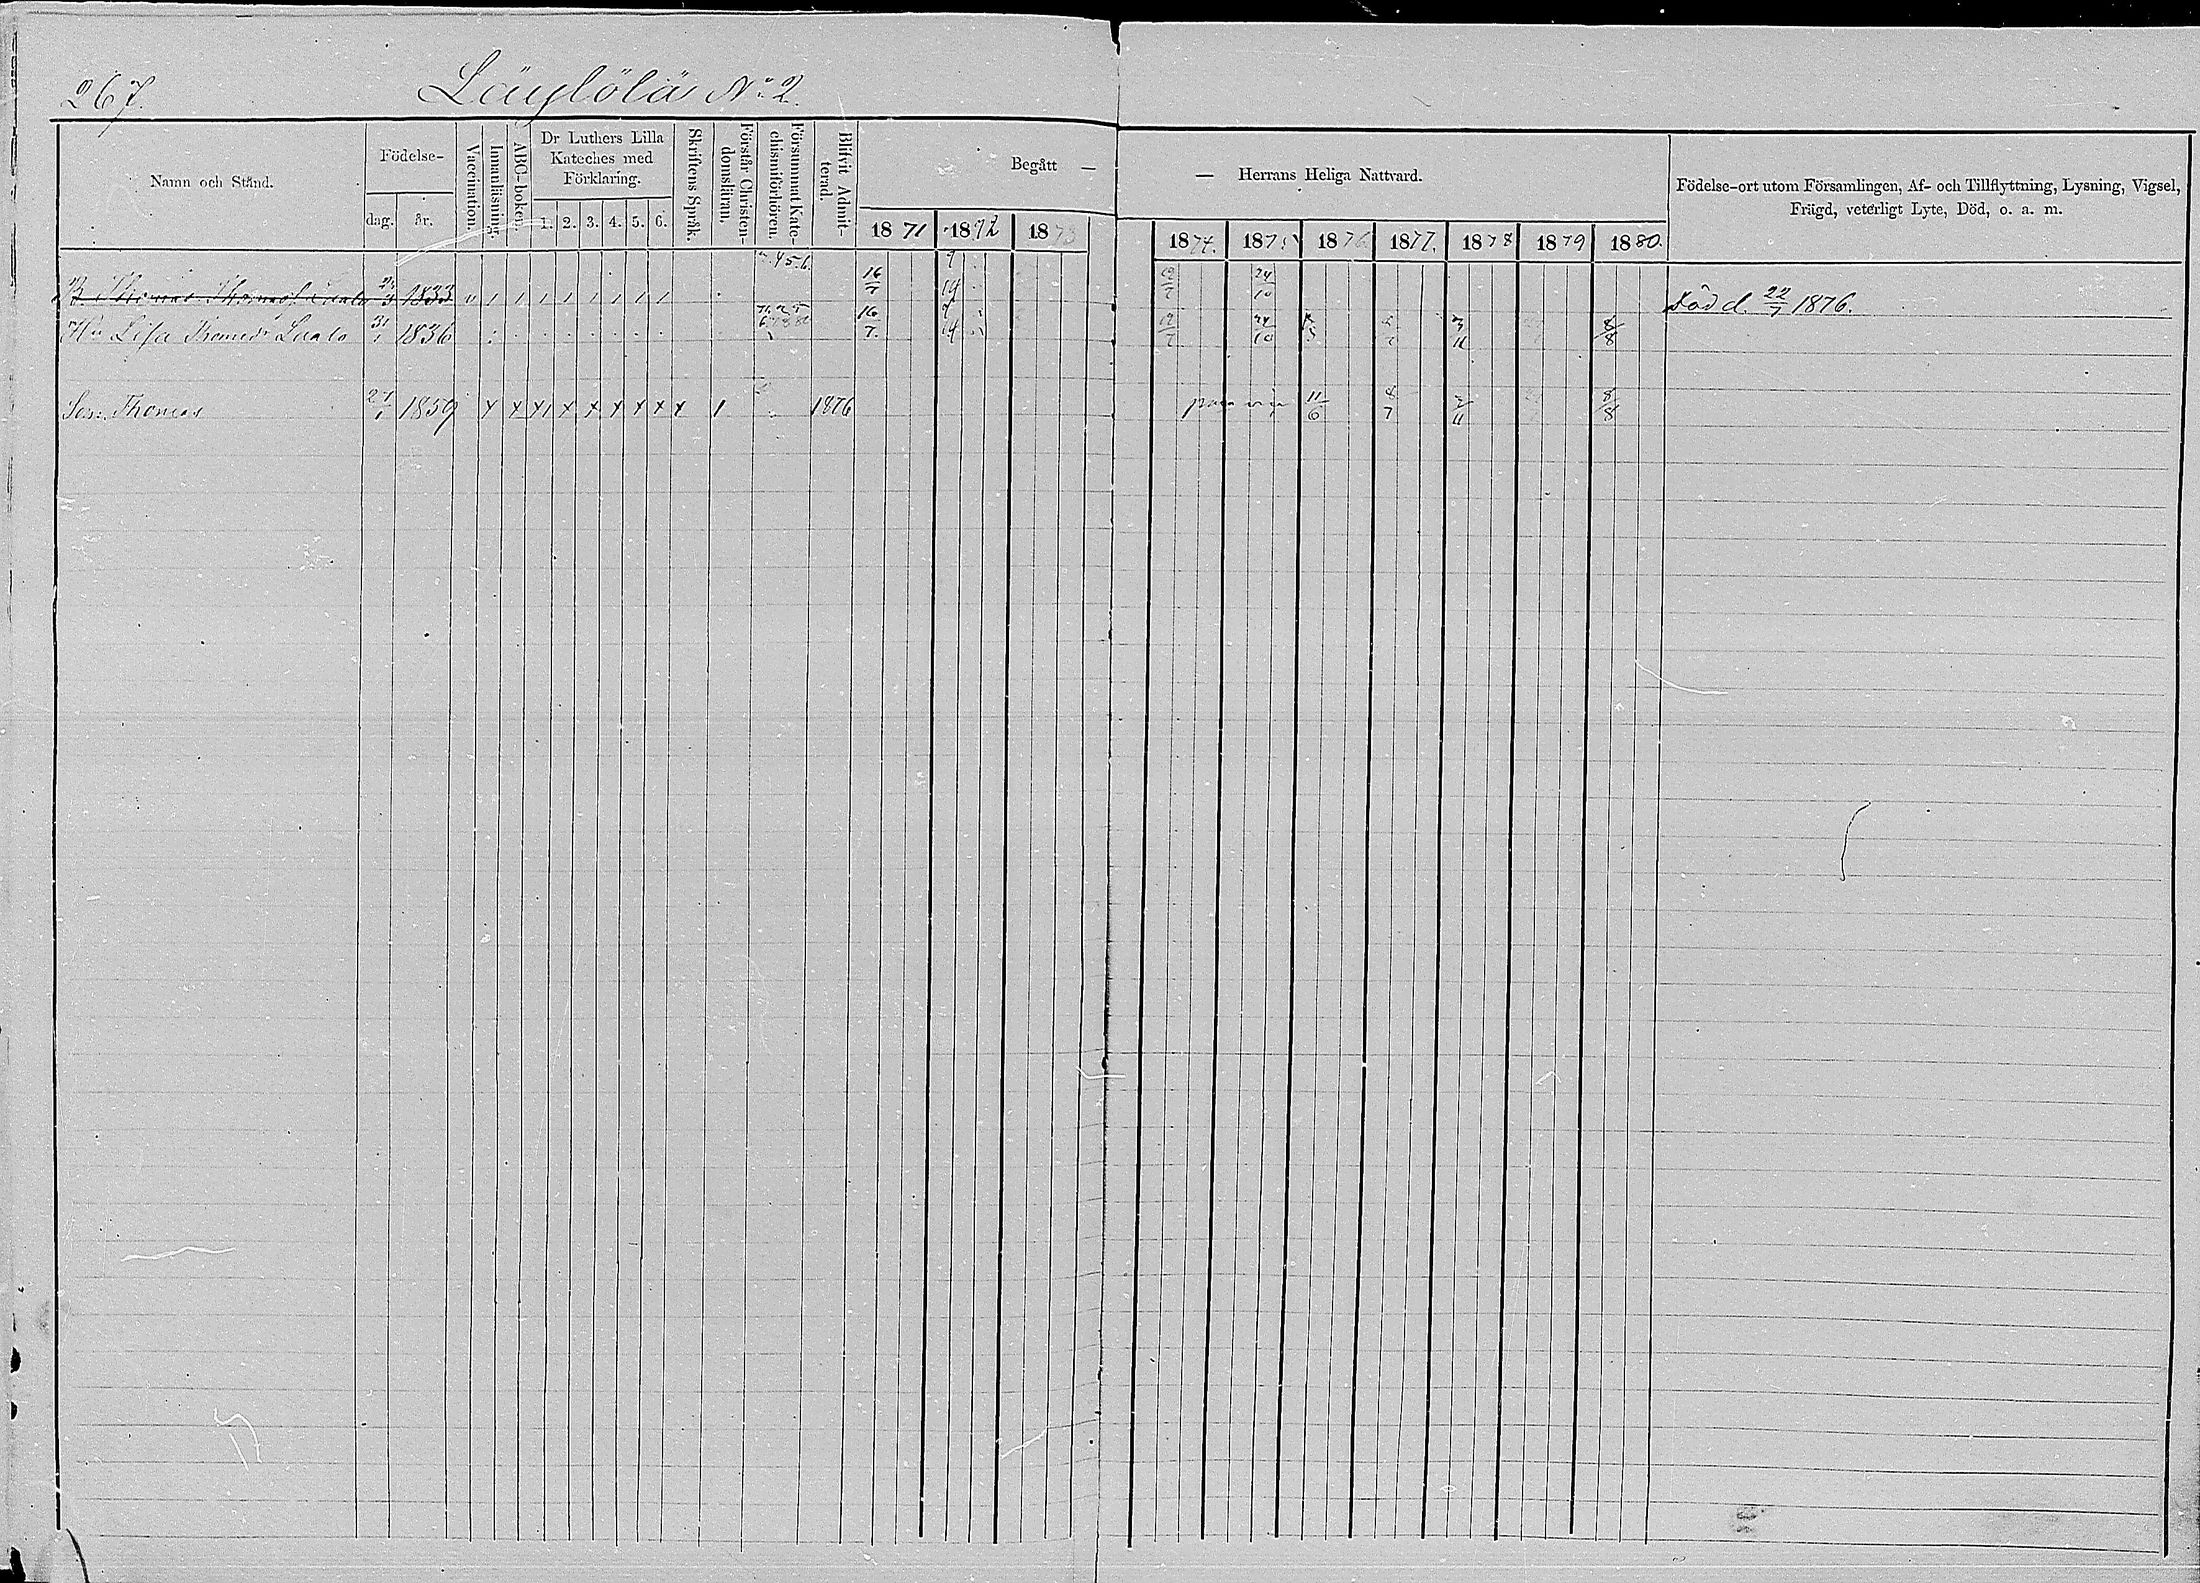 267.
Läylölä No 2.
Namn och Stånd.
Födelse-
dag.
år.
Vaccination.
Innanläsning.
ABC-boken.
Dr Luthers Lilla
Kateches med
Förklaring.
1. 2. 3. 4. 5. 6.
Skriftens Språk.
Förstår Christen-
domsläran.
Försummat Kate-
chismiförhören.
Blifvit Admit-
terad.
Begått —
1871 1872 1873
— Herrans Heliga Nattvard.
1874. 1875 1876 1877. 1878 1879 1880.
Födelse-ort utom Församlingen, Af- och Tillflyttning, Lysning, Vigsel,
Frägd, veterligt Lyte, Död, o. a. m.
B. Thomas 1833 16/7 12/7 24/10 Död d. 22/7 1876.
Hu Lisa 1836 16/7 12/7 24/10 8/8
Son: Thomas 1859 x x x 1 x x x x x x 1 1876 11/6 8/7 8/8